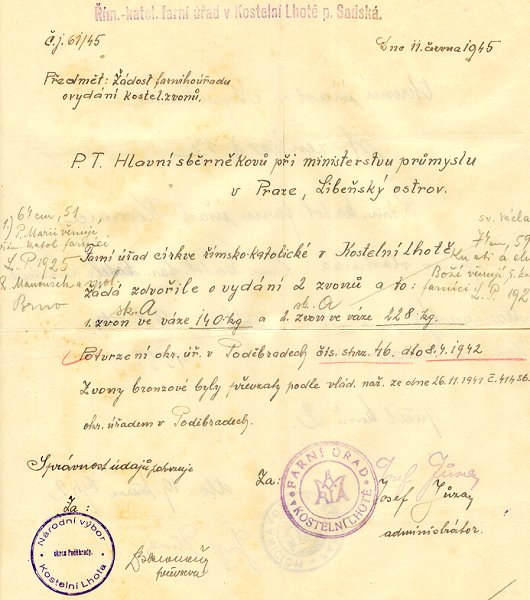 Řím.-katol. farní úřad v Kostelní Lhotě p. Sadská.
Č.j. 61/45
Dne 11. června 1945
Předmět: Žádost farního úřadu
o vydání kostel. zvonů.
P.T. Hlavní sběrně kovů při ministerstvu průmyslu
v Praze, Libeňský ostrov.
1.) 64 cm, 51
P. Marii věnuje
řím. katol. farníci
L.P. 1925
R. Manoušek a spol.
Brno
sv. Václa
74 cm, 59
Ku cti a
Boží věnují
farníci L.P. 192
Farní úřad církve římsko-katolické v Kostelní Lhotě
žádá zdvořile o vydání 2 zvonů a to:
sk. A sk. A
1. zvon ve váze 140 kg a 2. zvon ve váze 228 kg.
Potvrzení okr. úř. v Poděbradech čís. strz. 46. dto 8.4.1942
Zvony bronzové byly převzaty podle vlád. nař. ze dne 26.11.1941 č. 414 Sb.
okr. úřadem v Poděbradech.
Správnost údajů potvrzuje
Za:
Za:
FARNÍ ÚŘAD
KOSTELNÍ LHOTĚ
Josef Jůzay
administrátor.
Národní výbor
okres Poděbrady.
Kostelní Lhota
předseda